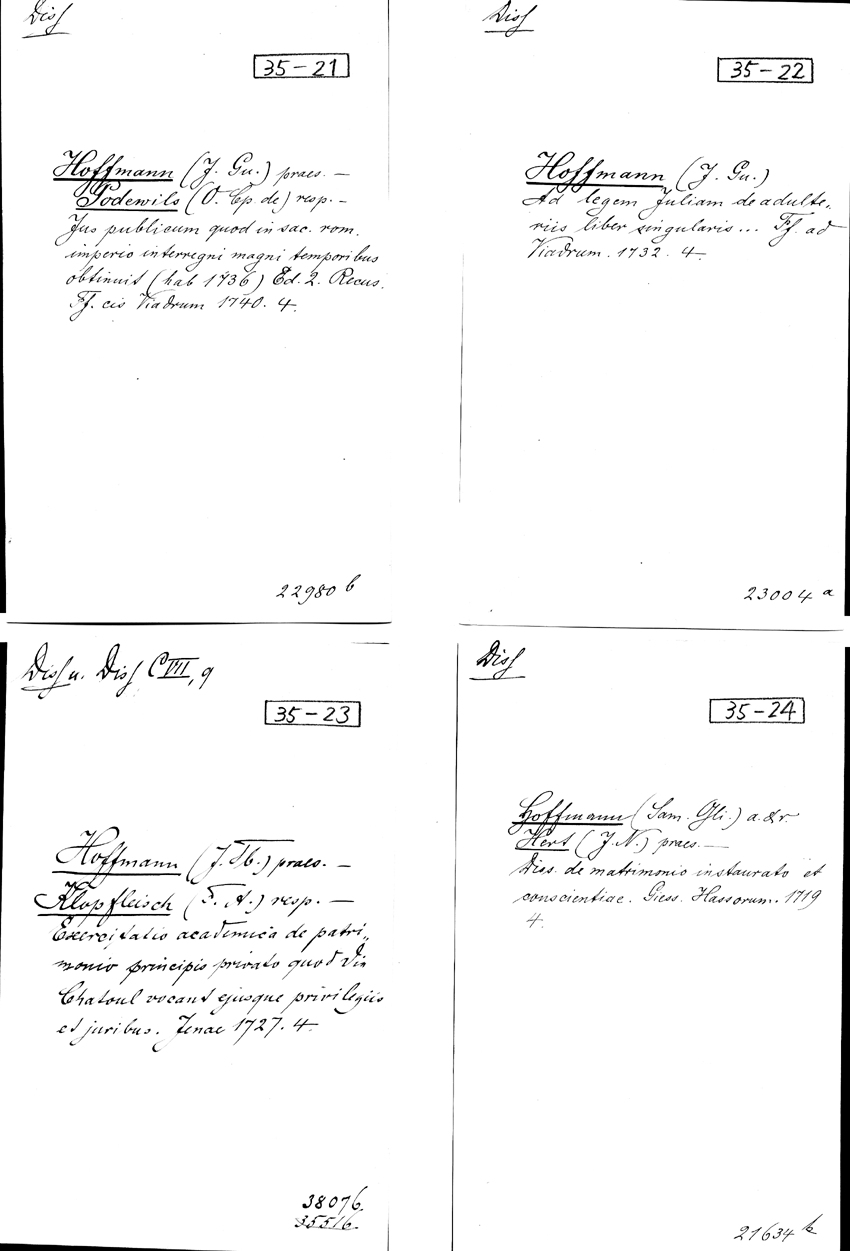 Diss
35-21
Hoffmann (J. Gu.) praes. —
Podewils (O. Cp de) resp. —
Jus publicum quod in sac. rom.
imperio interregni magni temporibus
obtinuit (hab 1736) Ed. 2. Recus.
Ff. cis Viadrum 1740. 4.
22980 b
Diss
35-22
Hoffmann (J. Gu.)
Ad legem Juliam de adulte„
riis liber singularis... Ff. ad
Viadrum. 1732. 4.
23004 a
Diss u. Diss C VII, q
35-23
Hoffmann (J. Th.) praes. —
Klopfleisch (F. A.) resp. —
Exercitatio academica de patri„
monio principis privato quod die
Chatoul vocant ejusque privilegiis
et juribus. Jenae 1727. 4.
38076.
35516.
Diss
35-24
Hoffmann (Sam. Gli.) a. & r.
Hert (J. N.) praes. —
Diss. de matrimonio instaurato et
conscientiae. Giess. Hassorum. 1719
4.
21634 k